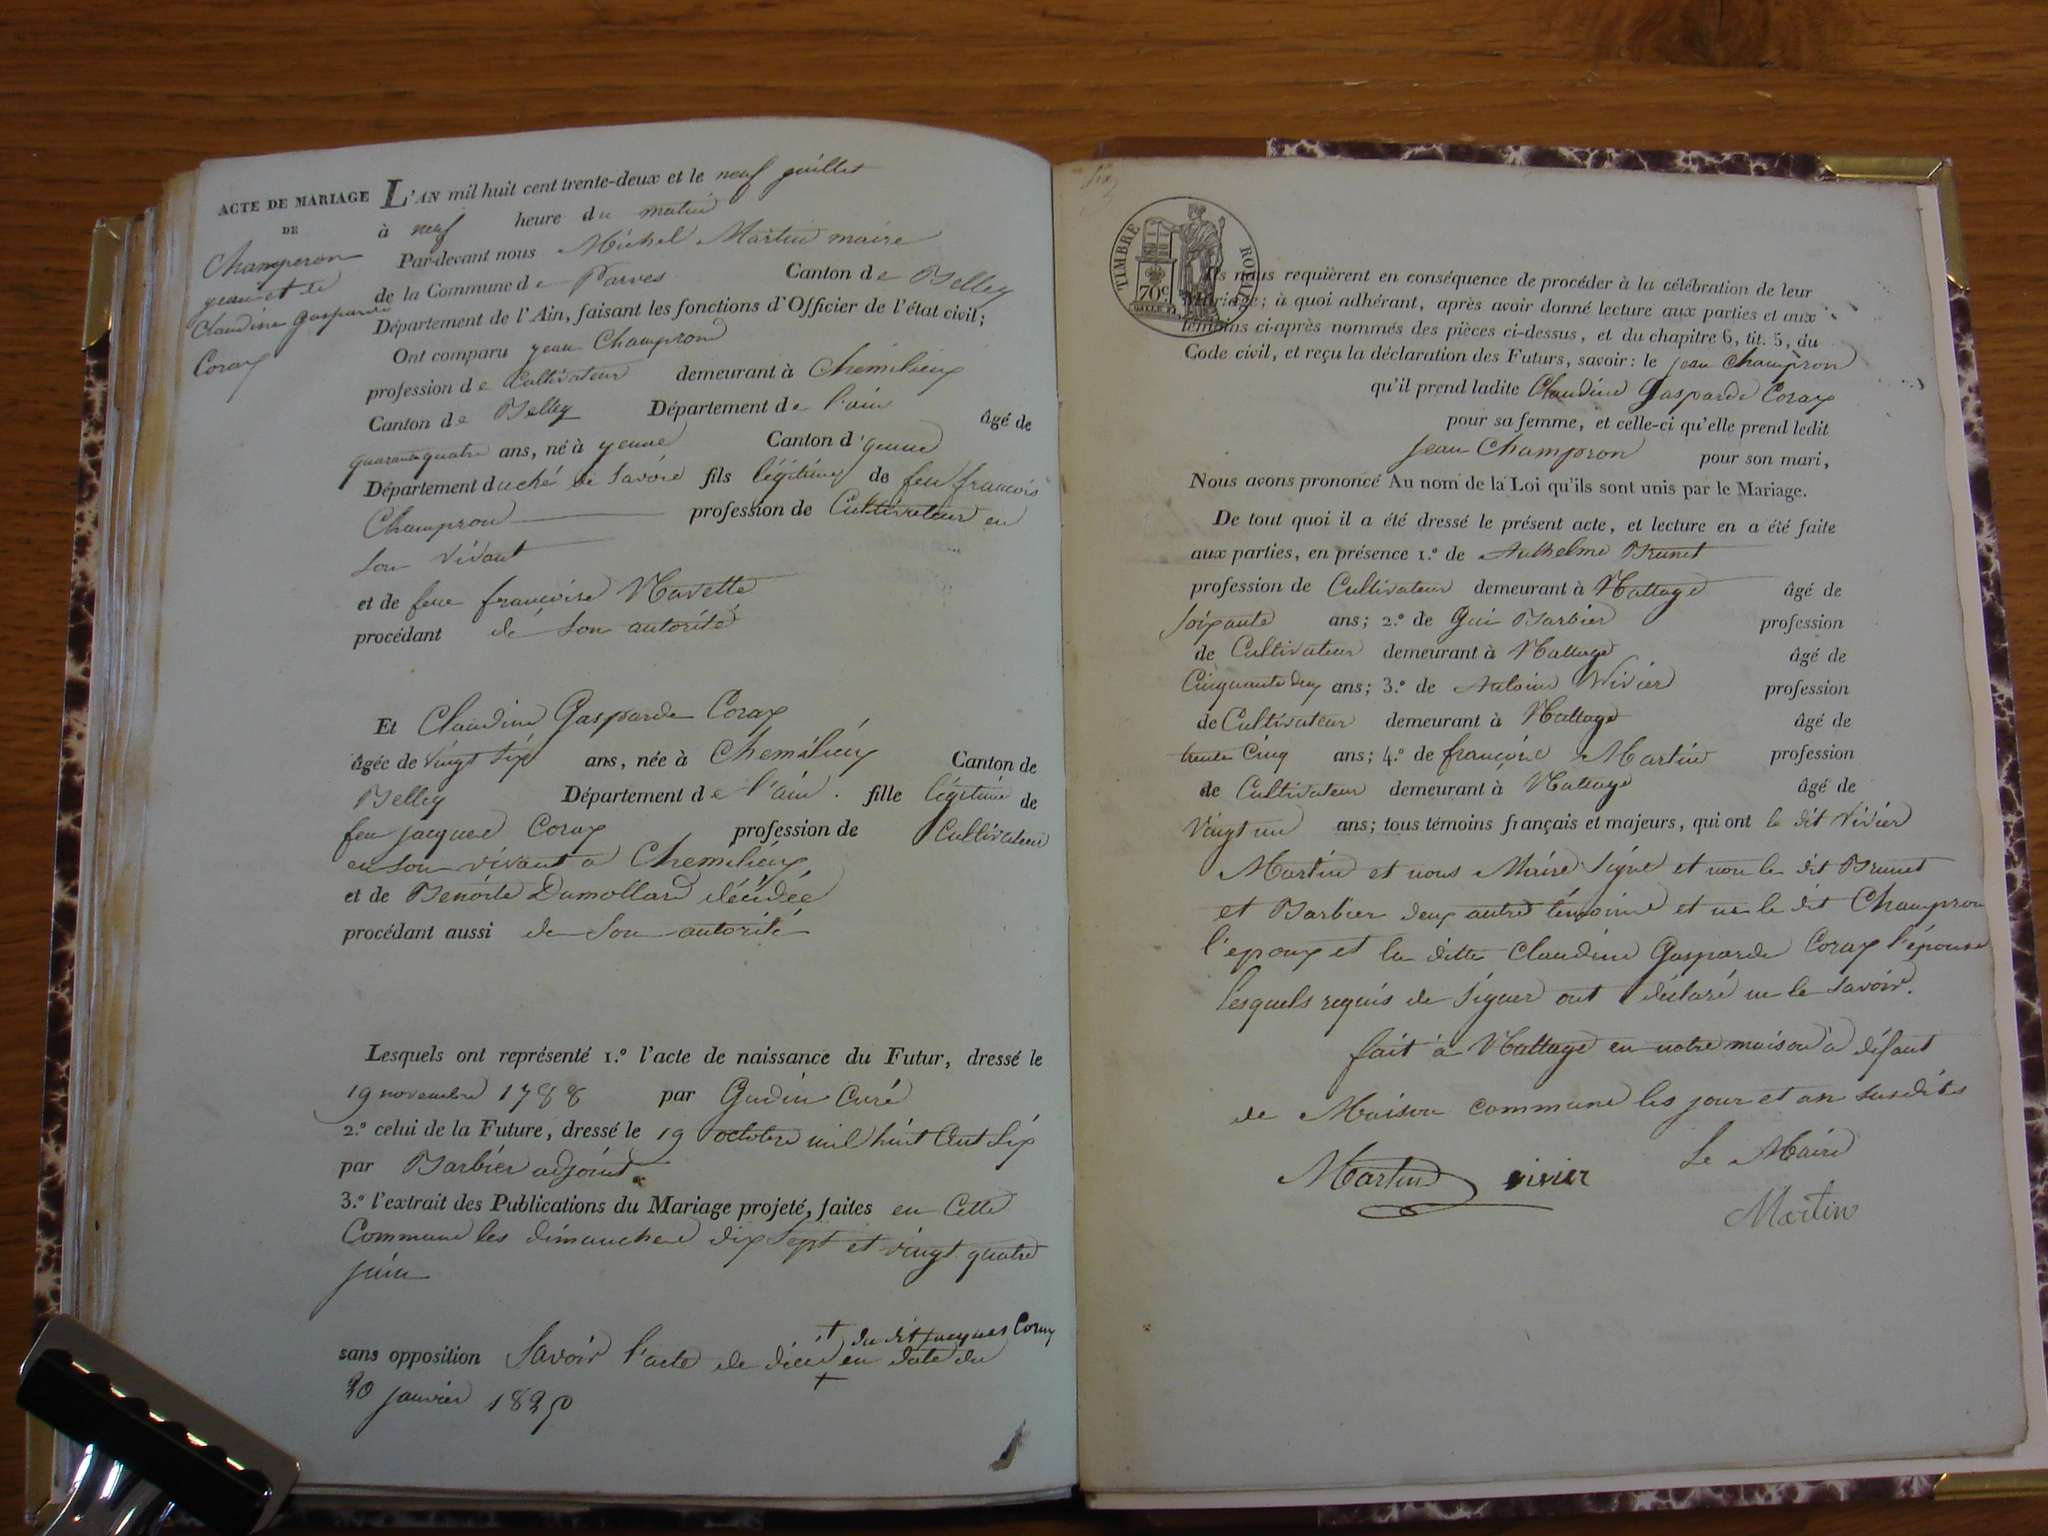 ACTE DE MARIAGE
DE
Champeron
jean et de
Claudine Gasparde
Corax
L'AN mil huit cent trente-deux et le neuf juillet
à neuf heure du matin
Par-devant nous Michel Martin maire
de la Commune de Parves Canton de Belley
Département de l'Ain, faisant les fonctions d'Officier de l'état civil;
Ont comparu jean Champron
profession de Cultivateur demeurant à Chemilieux
Canton de Belley Département de l'ain âgé de
quarante quatre ans, né à yenne Canton d'yenne
Département duché de Savoie fils légitime de feu françois
Champron profession de Cultivateur en
son vivant
et de feue françoise Navette
procédant de Son autorité
Et Claudine Gasparde Corax
âgée de vingt six ans, née à Chemilieux Canton de
Belley Département de l'ain. fille légitime de
feu jacques Corax profession de Cultivateur
en son vivant a Chemilieux
et de Benoite Dumollard décédée
procédant aussi de Son autorité
Lesquels ont représenté 1.º l'acte de naissance du Futur, dressé le
19 novembre 1788 par Gudin Curé
2.º celui de la Future, dressé le 19 octobre mil huit Cent Six
par Barbier adjoint
3.º l'extrait des Publications du Mariage projeté, faites en Cette
Commune les dimanches dix Sept et vingt quatre
juin
du dit jacques Corax
sans opposition Savoir l'acte de décè en date du
30 janvier
TIMBRE ROYAL
70 c
Ils nous requièrent en conséquence de procéder à la célébration de leur
Mariage; à quoi adhérant, après avoir donné lecture aux parties et aux
témoins ci-après nommés des pièces ci-dessus, et du chapitre 6, tit. 5, du
Code civil, et reçu la déclaration des Futurs, savoir: le jean Champron
qu'il prend ladite Claudine Gasparde Corax
pour sa femme, et celle-ci qu'elle prend ledit
Jean Champron pour son mari,
Nous avons prononcé Au nom de la Loi qu'ils sont unis par le Mariage.
De tout quoi il a été dressé le présent acte, et lecture en a été faite
aux parties, en présence 1.º de Anthelme Brunet
profession de Cultivateur demeurant à Nattage âgé de
Soixante ans; 2.º de Gui Barbier profession
de Cultivateur demeurant à Nattage âgé de
Cinquante deux ans; 3.º de Antoine Vivier profession
de Cultivateur demeurant à Nattage âgé de
trente Cinq ans; 4.º de françois Martin profession
de Cultivateur demeurant à Nattage âgé de
Vingt un ans; tous témoins français et majeurs, qui ont le dit Vivier
Martin et nous Maire Signé et non le dit Brunet
et Barbier deux autres témoins et ni le dit Champron
l'epoux et la ditte Claudine Gasparde Corax l'épouse
lesquels requis de Signer ont déclaré ne le savoir.
fait à Nattage en notre maison à défaut
de Maison commune les jour et an susdits
Le Maire
Martin vivier
Martin